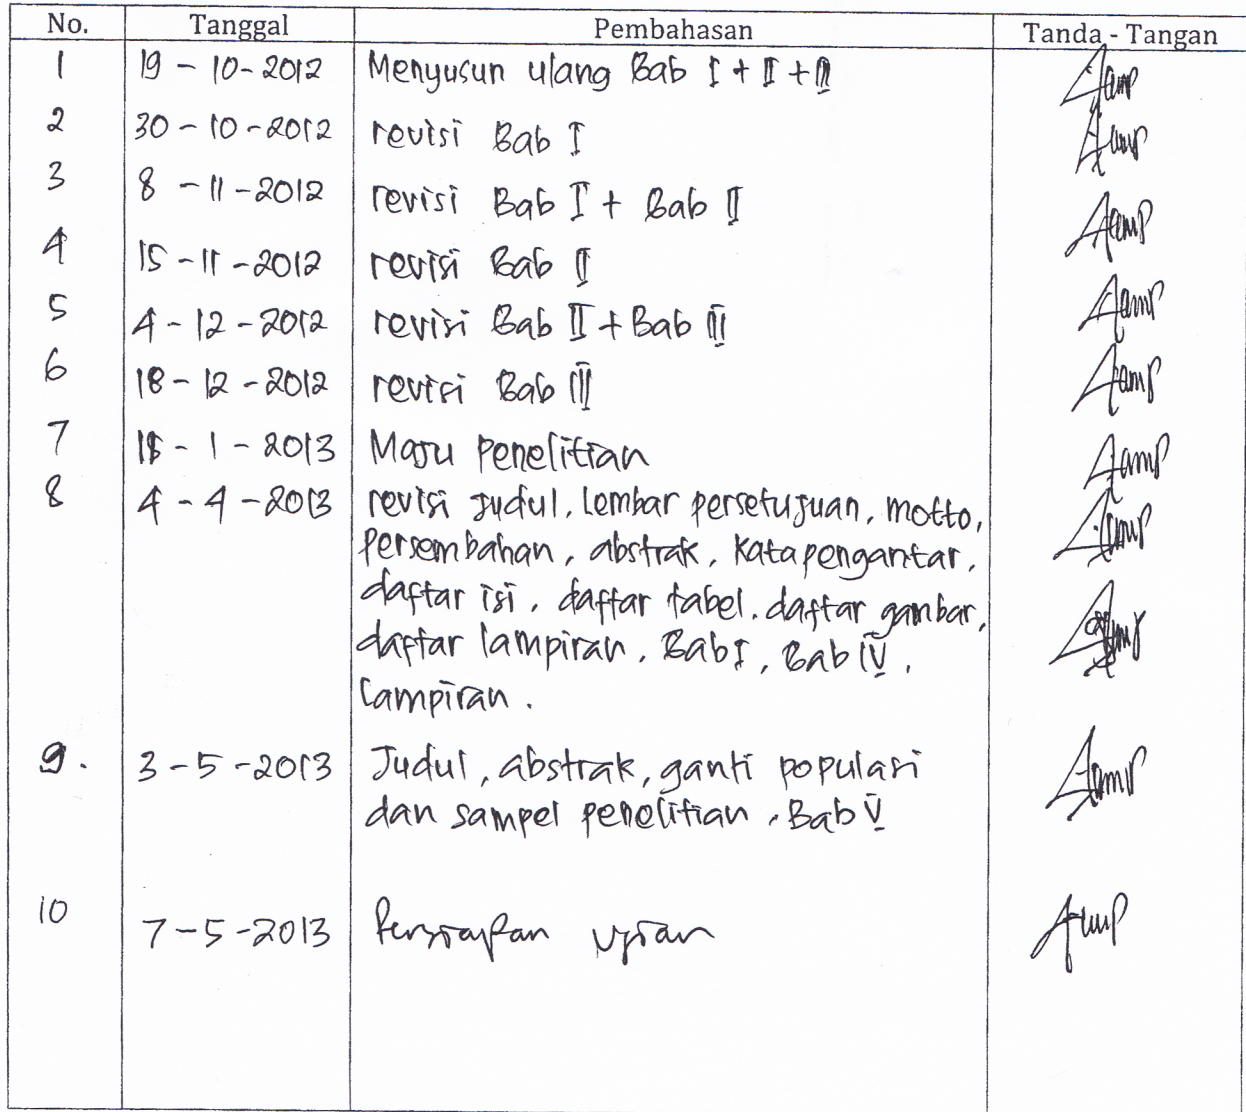 No. Tanggal Pembahasan Tanda - Tangan
1 19 - 10 - 2012 Menyusun ulang Bab I + II + III
2 30 - 10 - 2012 revisi Bab I
3 8 - 11 - 2012 revisi Bab I + Bab II
4 15 - 11 - 2012 revisi Bab II
5 4 - 12 - 2012 revisi Bab II + Bab III
6 18 - 12 - 2012 revisi Bab III
7 - 1 - 2013 Maju penelitian
8 4 - 4 - 2013 revisi judul, lembar persetujuan, motto,
persembahan, abstrak, kata pengantar,
daftar isi, daftar tabel, daftar gambar,
daftar lampiran, Bab I, Bab IV,
Lampiran.
9. 3 - 5 - 2013 Judul, abstrak, ganti populasi
dan sampel penelitian, Bab V
10 7 - 5 - 2013 Persiapan ujian